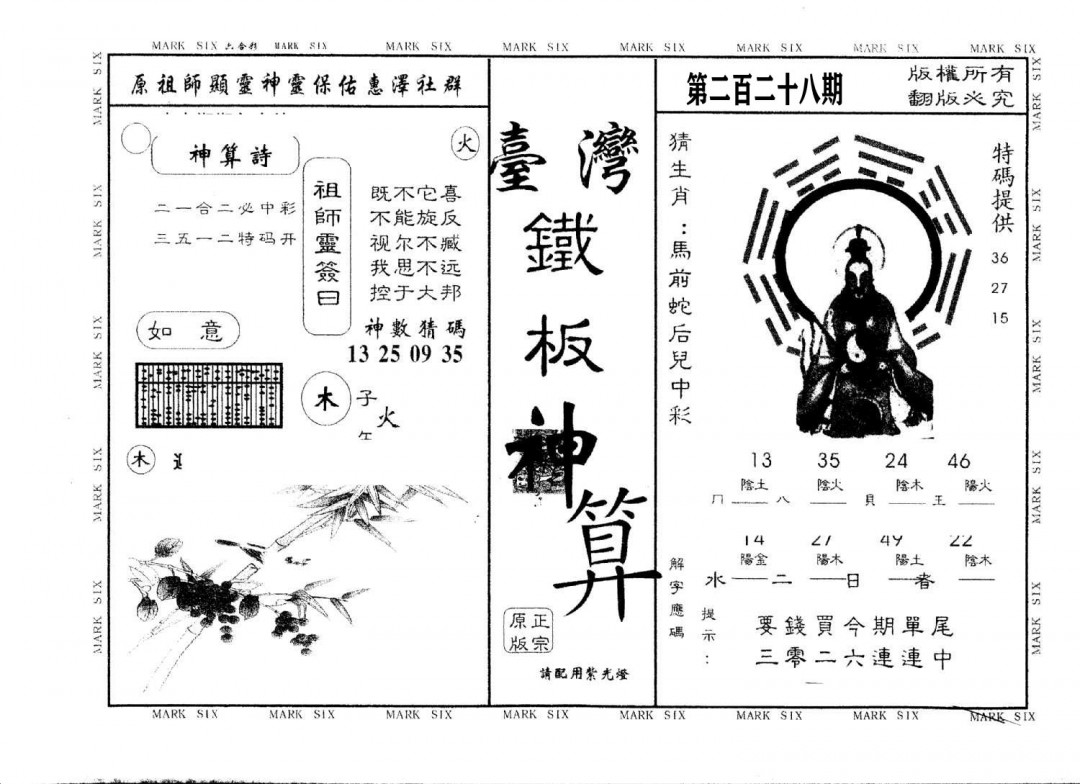 MARK SIX 六合彩 MARK SIX MARK SIX MARK SIX MARK SIX MARK SIX MARK SIX MARK SIX
原祖師顯靈神靈保佑惠澤社群
神算詩
火
二一合二必中彩
三五一二特码开
祖師靈簽曰
既不它喜
不能旋反
视尔不臧
我思不远
控于大邦
神數猜碼
13 25 09 35
如意
木
子
火
木
臺灣
鐵
板
神
算
正宗
原版
請配用紫光燈
第二百二十八期
版權所有
翻版必究
猜生肖：馬前蛇后兒中彩
特碼提供
36
27
15
13 35 24 46
陰土 陰火 陰木 陽火
八 貝 王
14 27 49 22
陽金 陽木 陽土 陰木
水 二 日 春
解字應碼
提示：
要錢買今期單尾
三零二六連連中
MARK SIX MARK SIX MARK SIX MARK SIX MARK SIX MARK SIX MARK SIX MARK SIX
MARK SIX MARK SIX MARK SIX MARK SIX MARK SIX
MARK SIX MARK SIX MARK SIX MARK SIX MARK SIX